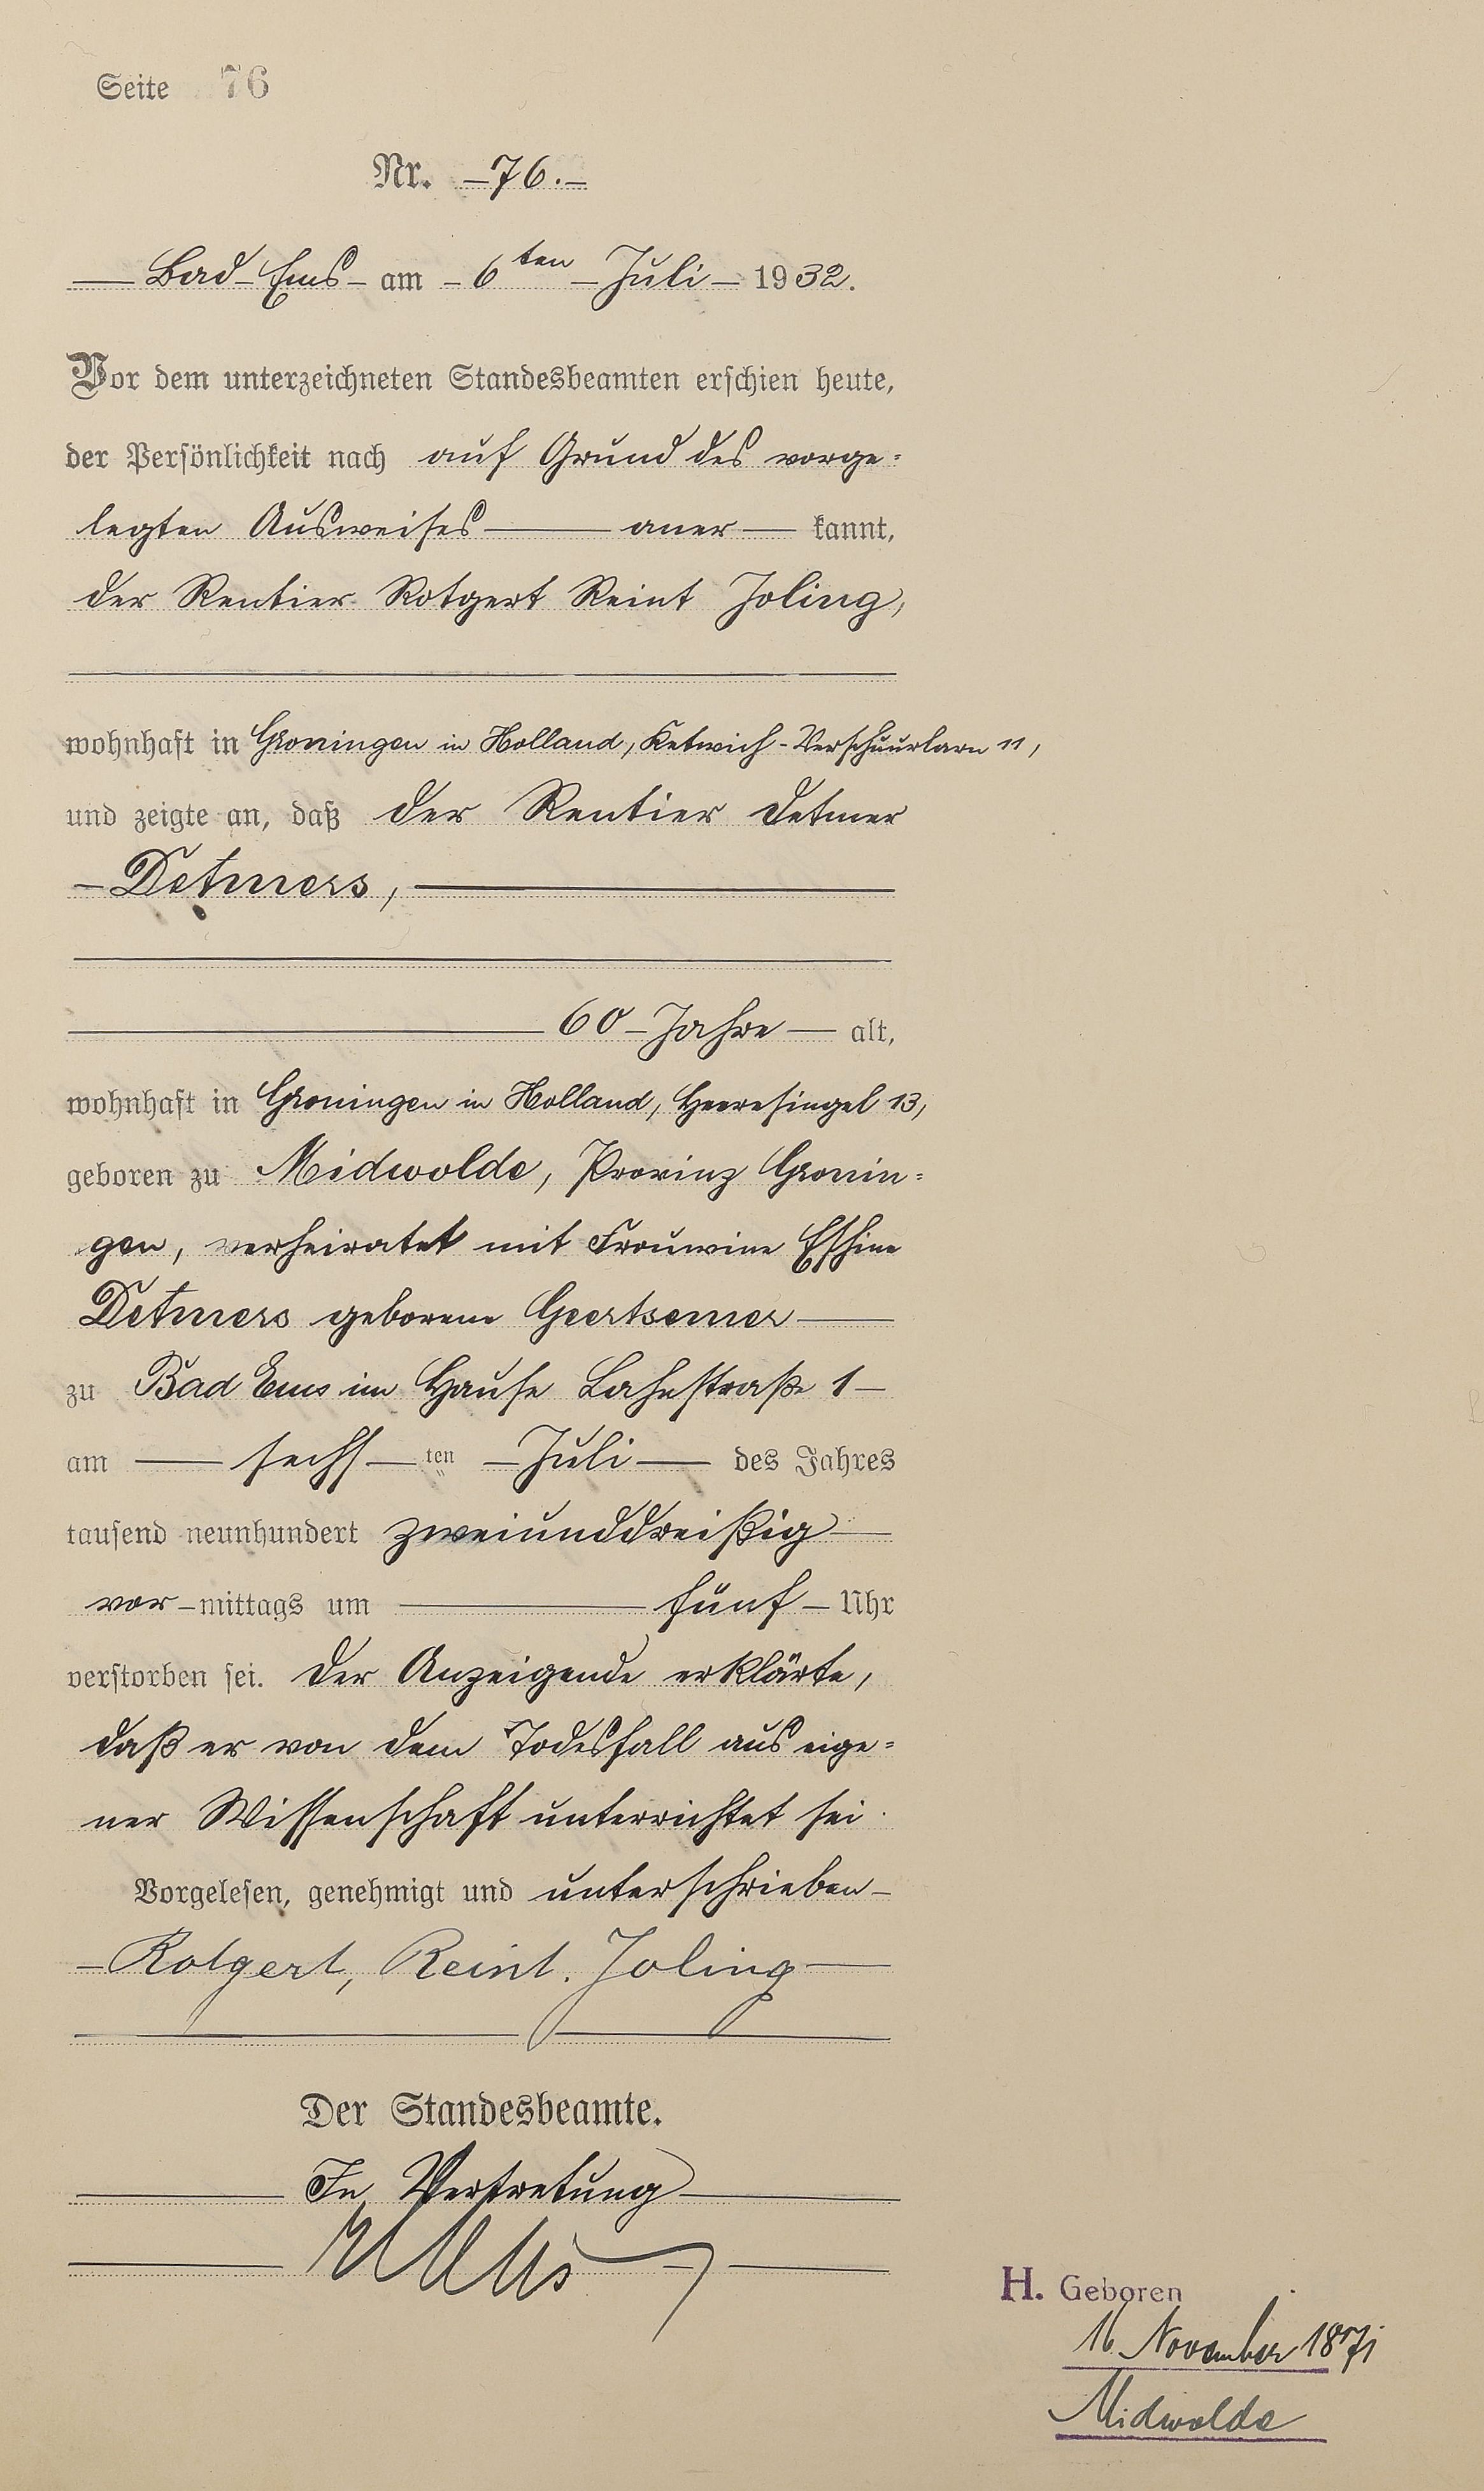 Seite 76
Nr. 76.
Bad Ems am 6ten Juli 1932.
Vor dem unterzeichneten Standesbeamten erschien heute,
der Persönlichkeit nach auf Grund des vorge=
legten Ausweises aner kannt,
der Rentier Rotgert Reint Joling,
wohnhaft in Groningen in Holland, Ketwich-Verschuurlaan 11,
und zeigte an, daß der Rentier Detmer
Detmers,
60 Jahre alt,
wohnhaft in Groningen in Holland, Heeresingel 13,
geboren zu Midwolde, Provinz Gronin=
gen, verheiratet mit Frouwine Eshine
Detmers geborene Geertsemer
zu Bad Ems im Hause Lahnstraße 1
am sechsten Juli des Jahres
tausend neunhundert zweiunddreißig
vor-mittags um fünf Uhr
verstorben sei. Der Anzeigende erklärte,
daß er von dem Todesfall aus eige=
ner Wissenschaft unterrichtet sei.
Vorgelesen, genehmigt und unterschrieben
Rotgert, Reint. Joling
Der Standesbeamte.
In Vertretung
H. Geboren
16. November 1871
Midwolde